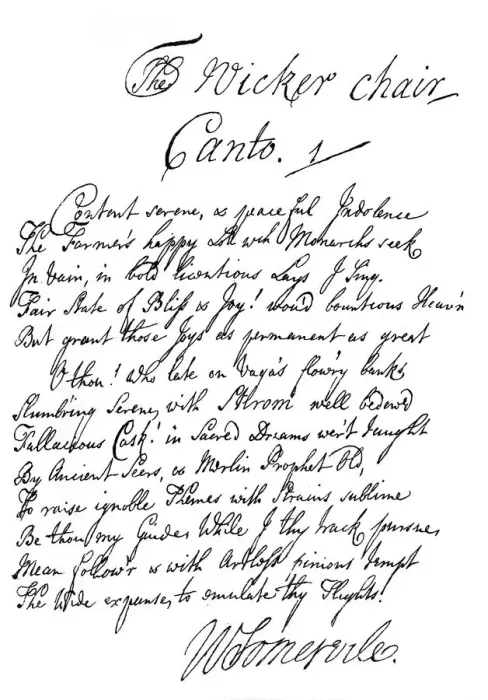 The Wicker chair
Canto. 1
Content serene, & peaceful Indolence
The Farmer's happy Lott wch Monarchs seek
In vain, in bold licentious Lays I Sing.
Fair State of Bliss & Joy! wou'd bounteous Heav'n
But grant those Joys as permanent as great
O thou! who late on Vaga's flow'ry banks
Slumb'ring Serene, with Strom well bedew'd
Fallacious Cask! in Sacred Dreams wer't taught
By Ancient Seers, & Merlin Prophet Old,
To raise ignoble Themes with Strains sublime
Be thou my Guide, While I thy track pursue,
Mean follow'r & with Artless pinions tempt
The Wide expanse, to emulate thy Flights.
WSomervile.